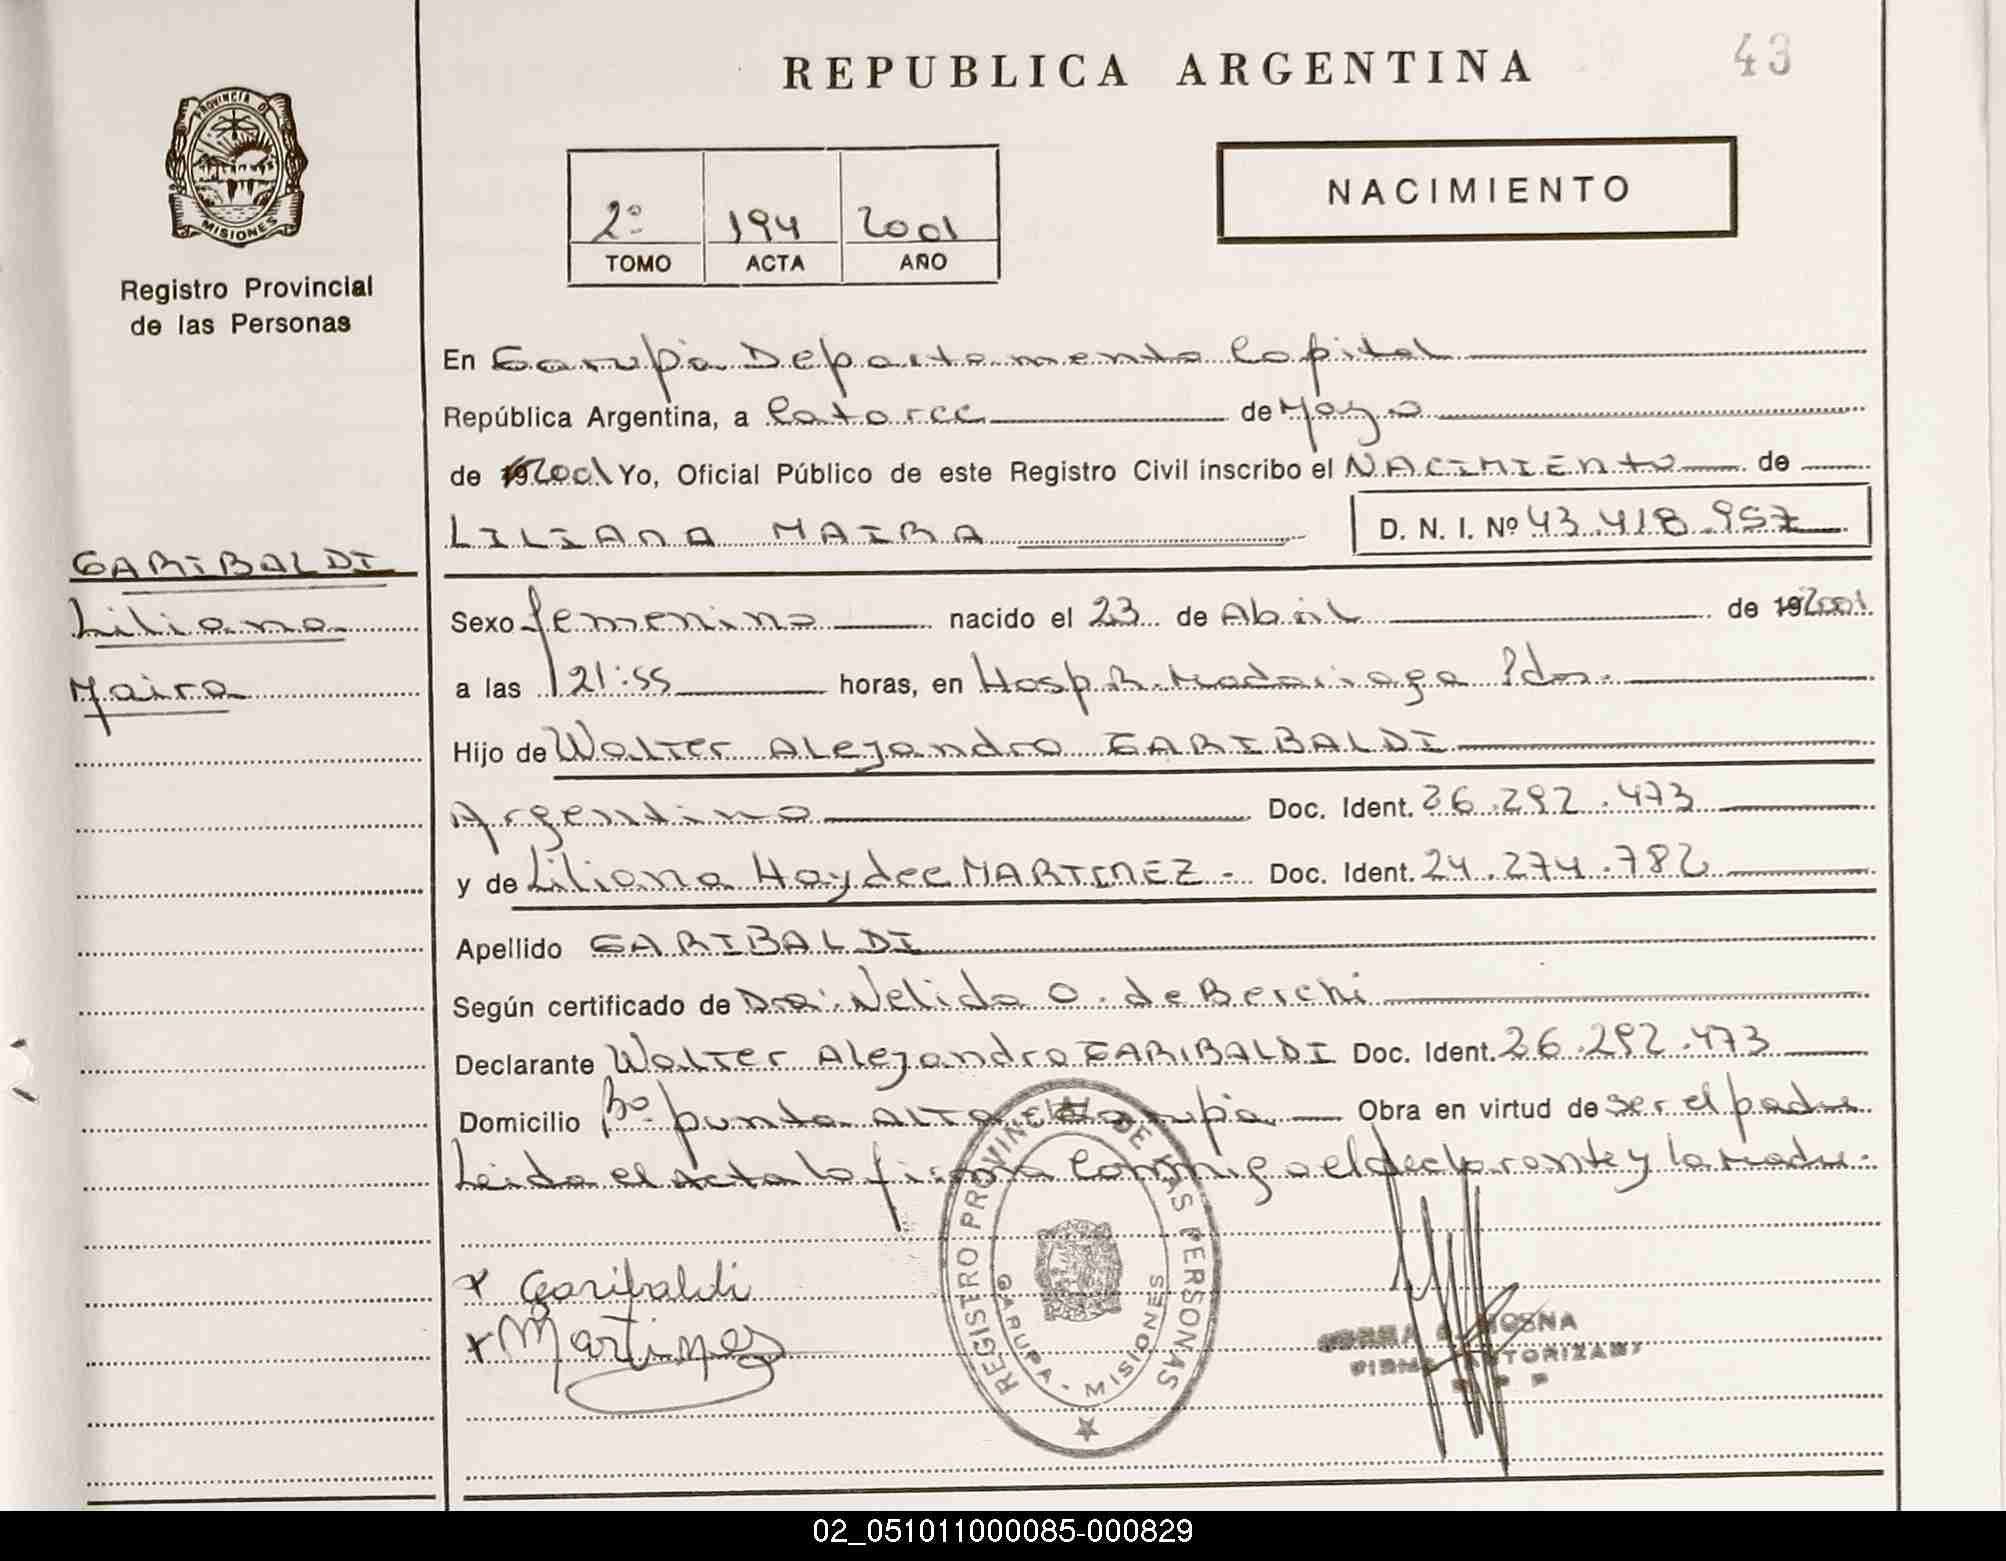 43
REPUBLICA ARGENTINA
PROVINCIA DE
MISIONES
Registro Provincial
de las Personas
2º 194 2001
TOMO ACTA AÑO
NACIMIENTO
En Garupá Departamento Capital
República Argentina, a Catorce de Mayo
de 19 2001 Yo, Oficial Público de este Registro Civil inscribo el NACIMIENTO de
LILIANA MAIRA D. N. I. Nº 43.418.957
GARIBALDI
Liliana
Maira
Sexo femenino nacido el 23 de Abril de 19 2001
a las 21:55 horas, en Hosp. R. Madariaga Pdas.
Hijo de Walter Alejandro GARIBALDI
Argentino Doc. Ident. 26.292.473
y de Liliana Haydee MARTINEZ - Doc. Ident. 24.274.782
Apellido GARIBALDI
Según certificado de Dra: Nelida O. de Berchi
Declarante Walter Alejandro GARIBALDI Doc. Ident. 26.292.473
Domicilio Bº punta ALTA Garupá Obra en virtud de ser el padre
Leida el Acta la firma Conmigo el declarante y la Madre.
x Garibaldi
x Martinez
REGISTRO PROVINCIAL DE LAS PERSONAS
GARUPA - MISIONES
MOSNA
FIRMA AUTORIZADA
02_051011000085-000829